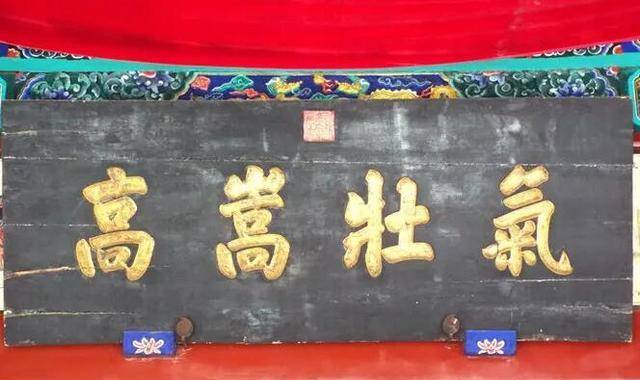 氣壯嵩高